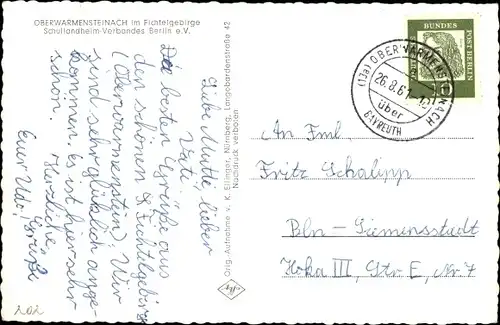 OBERWARMENSTEINACH im Fichtelgebirge
Schullandheim-Verbandes Berlin e.V.
Liebe Mutti, lieber
Vati!
Die besten Grüße aus
dem schönen Fichtelgebirge
(Oberwarmenstein). Wir
sind sehr glücklich ange-
kommen. Es ist hier sehr
schön. Herzliche
Grüße
Euer Udo!
Orig. Aufnahme v. K. Ellinger, Nürnberg, Langobardenstraße 42
Nachdruck verboten
DEUTSCHE BUNDESPOST BERLIN
10
(13a) OBERWARMENSTEINACH
26.8.61
über
BAYREUTH
An Fml.
Fritz Schalipp
Bln - Siemensstadt
Hoka III, Str E, Nr 7
202